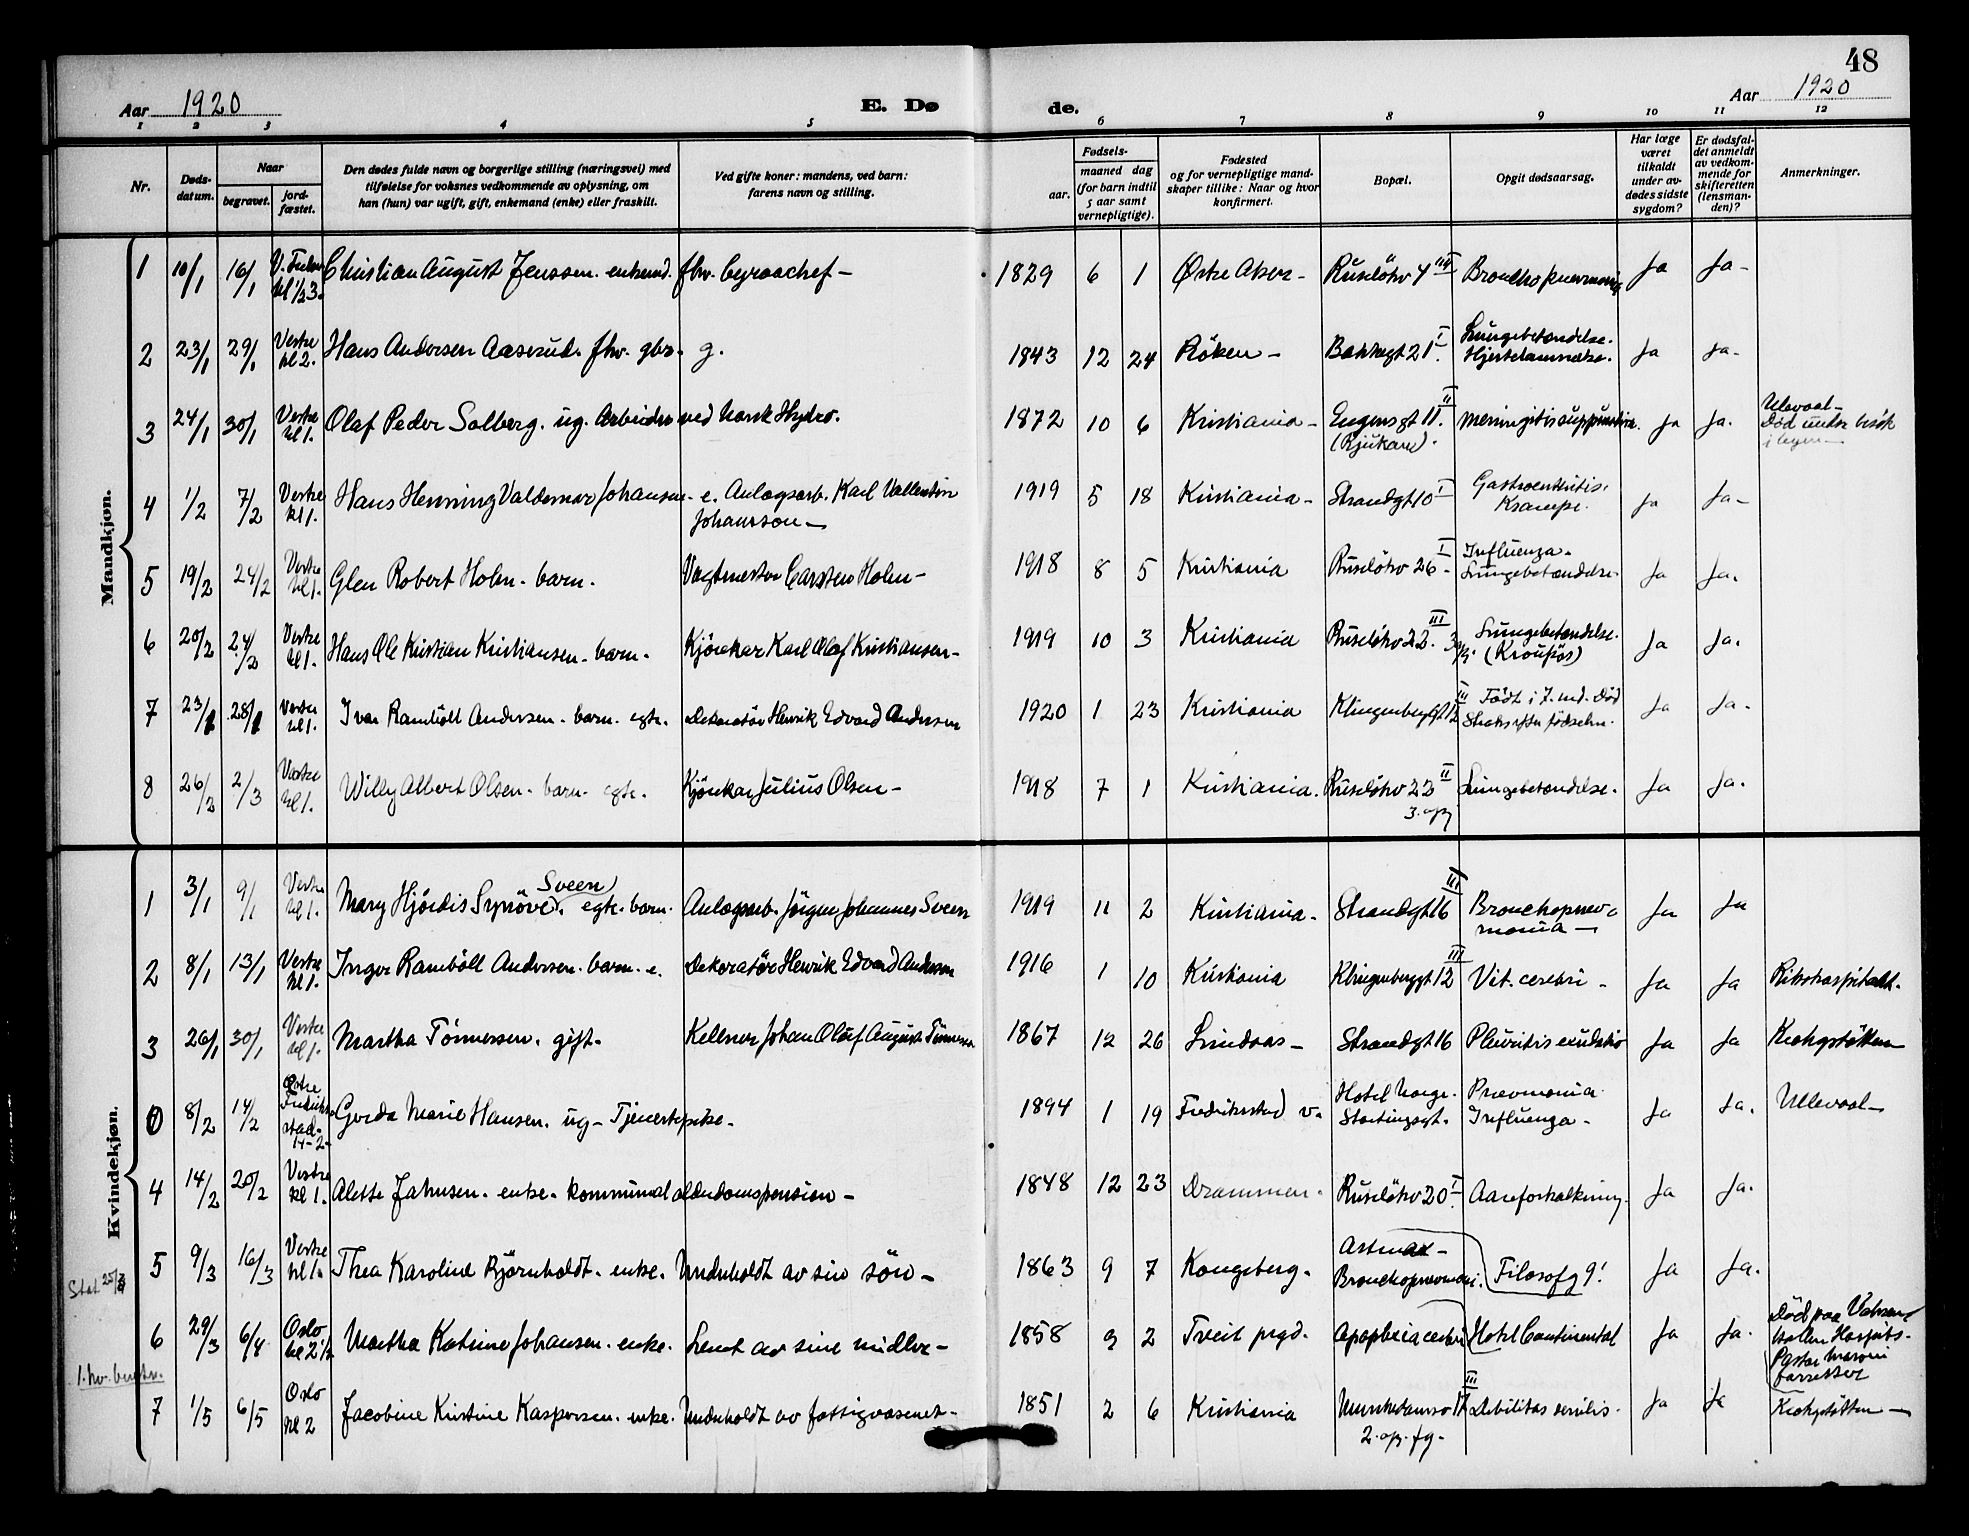 48
Aar 1920
E. Dø
de.
Aar 1920
1 2 3 4 5 6 7 8 9 10 11 12
Nr.
Døds-
datum.
Naar
begravet.
jord-
fæstet.
Den dødes fulde navn og borgerlige stilling (næringsvei) med
tilføielse for voksnes vedkommende av oplysning, om
han (hun) var ugift, gift, enkemand (enke) eller fraskilt.
Ved gifte koner: mandens, ved barn:
farens navn og stilling.
Fødsels-
aar.
maaned dag
(for barn indtil
5 aar samt
vernepligtige).
Fødested
og for vernepligtige mand-
skaper tillike: Naar og hvor
konfirmert.
Bopæl.
Opgit dødsaarsag.
Har læge
været
tilkaldt
under av-
dødes sidste
sygdom?
Er dødsfal-
det anmeldt
av vedkom-
mende for
skifteretten
(lensman-
den)?
Anmerkninger.
Mandkjøn.
1 10/1 16/1 Christian August Jenssen. enkemd. fhv. byraachef - 1829 6 1 Østre Aker - Ruseløkv 4 Bronchopneumoni Ja Ja -
2 23/1 29/1 Vestre kl 2. Hans Andersen Aaserud. fhv. gbr. g. 1843 12 24 Röken - Bakkegt 21 I. Lungebetændelse.
Hjertelammelse. Ja Ja -
3 24/1 30/1 Vestre kl 1. Olaf Peder Solberg. ug. Arbeider ved Norsk Hydro. 1872 10 6 Kristiania - Eugensgt 11 II.
(Rjukan). Meningitis suppurativa. Ja Ja. Ullevaal -
Död under besök
i byen -
4 1/2 7/2 Vestre kl 1. Hans Henning Valdemar Johansen - e. Anlægsarb. Karl Vallentin
Johansson - 1919 5 18 Kristiania - Strandgt 10 I Gastroenteritis.
Krampe. Ja Ja -
5 19/2 24/2 Vestre kl 1. Glen Robert Holm - barn. Vagtmester Carsten Holm - 1918 8 5 Kristiania Ruseløkv 26 I - Influenza -
Lungebetændelse. Ja Ja.
6 20/2 24/2 Vestre kl 1. Hans Ole Kristian Kristiansen - barn - Kjörekar Karl Olaf Kristiansen - 1919 10 3 Kristiania Ruseløkv 22 III. Lungebetændelse.
(Kroupös) Ja Ja.
7 23/1 28/1 Vestre kl 1. Ivar Ramböll Andersen - barn - egte. Dekoratör Henrik Edvard Andersen 1920 1 23 Kristiania Klingenberggt 12 III Födt i 7. md. Död
Straks efter födselen. Ja Ja -
8 26/2 2/3 Vestre kl 1. Willy Albert Olsen - barn - egte. Kjörekar Julius Olsen - 1918 7 1 Kristiania. Ruseløkv 22 II
3. opg Lungebetændelse. Ja Ja.
Kvindekjøn.
1 3/1 9/1 Vestre kl 1. Mary Hjördis Synöve Sveen. egte. barn. Anlægsarb. Jörgen Johannes Sveen 1919 11 2 Kristiania - Strandgt 16 III Bronchopnev-
monia - Ja Ja
2 8/1 13/1 Vestre kl 1. Inger Ramböll Andersen - barn - e. Dekoratör Henrik Edvard Andersen 1916 1 10 Kristiania Klingenberggt 12 III Vit. cerebri - Ja Ja Rikshospitalet.
3 26/1 30/1 Vestre kl 1. Martha Tönnessen. gift. Kellner Johan Olaf August Tönnessen 1867 12 26 Lindaas - Strandgt 16 Pleuritis exudativ Ja Ja Krohgstötten
0 8/2 14/2 Østre Fredrik-
stad -
14 - 2 - Gerda Marie Hansen. ug - Tjenestepike - 1894 1 19 Fredriksstad v. Hotel Norge.
Stortingsgt. Pnevmonia
Influenza - Ja Ja. Ullevaal -
4 14/2 20/2 Vestre kl 1. Alette Jahnsen. enke - kommunal alderdomspension - 1848 12 23 Drammen. Ruseløkv 20 I. Aareforkalkning. Ja Ja.
5 9/3 16/3 Vestre kl 1. Thea Karoline Björnholdt. enke. Underholdt av sin sön - 1863 9 7 Kongsberg. Astma -
Bronchopneumoni. Filosofg 9! Ja Ja.
Stat 25/3
6 29/3 6/4 Oslo kl 2 1/2 Martha Katrine Johansen. enke. Levet av sine midler - 1858 9 2 Tveit prgd. Apoplexia cerebri Hotel Continental Ja Ja. Död paa
Hospits.
7 1/5 6/5 Oslo kl 2 Jacobine Kristine Kaspersen. enke. Underholdt av fattigvæsenet - 1851 2 6 Kristiania Munkedamsv 17 III
2. opg. fg. Debilitas senilis. Ja Ja Krohgstötten -